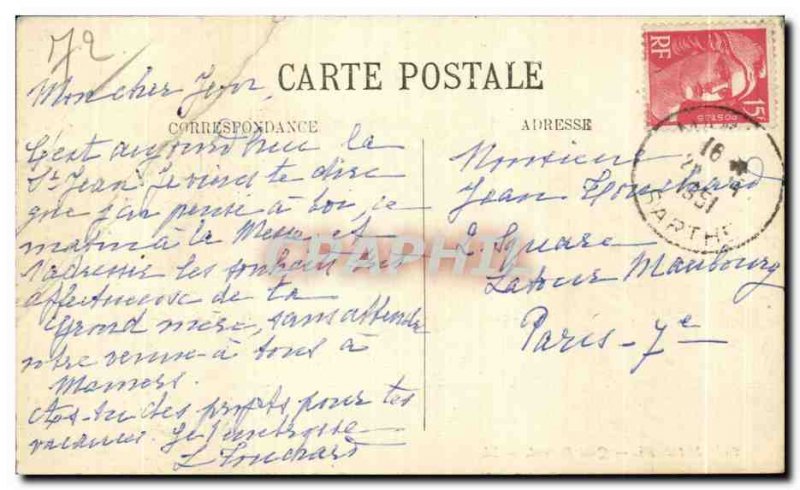 72
CARTE POSTALE
Mon cher Jean,
CORRESPONDANCE
C'est aujourd'hui la
St Jean. Je viens te dire
que j'ai pensé à toi, ce
matin à la Messe et
t'adresse les souhaits très
affectueux de ta
Grand mère, sans attendre
votre venue à tous à
Mamers.
As-tu des projets pour tes
vacances. Je t'embrasse
L Touchard
ADRESSE
Monsieur
Jean Touchard
2 Square
Latour Maubourg
Paris-7e
RF
15F
POSTES
16
1951
SARTHE
CPAPHIL